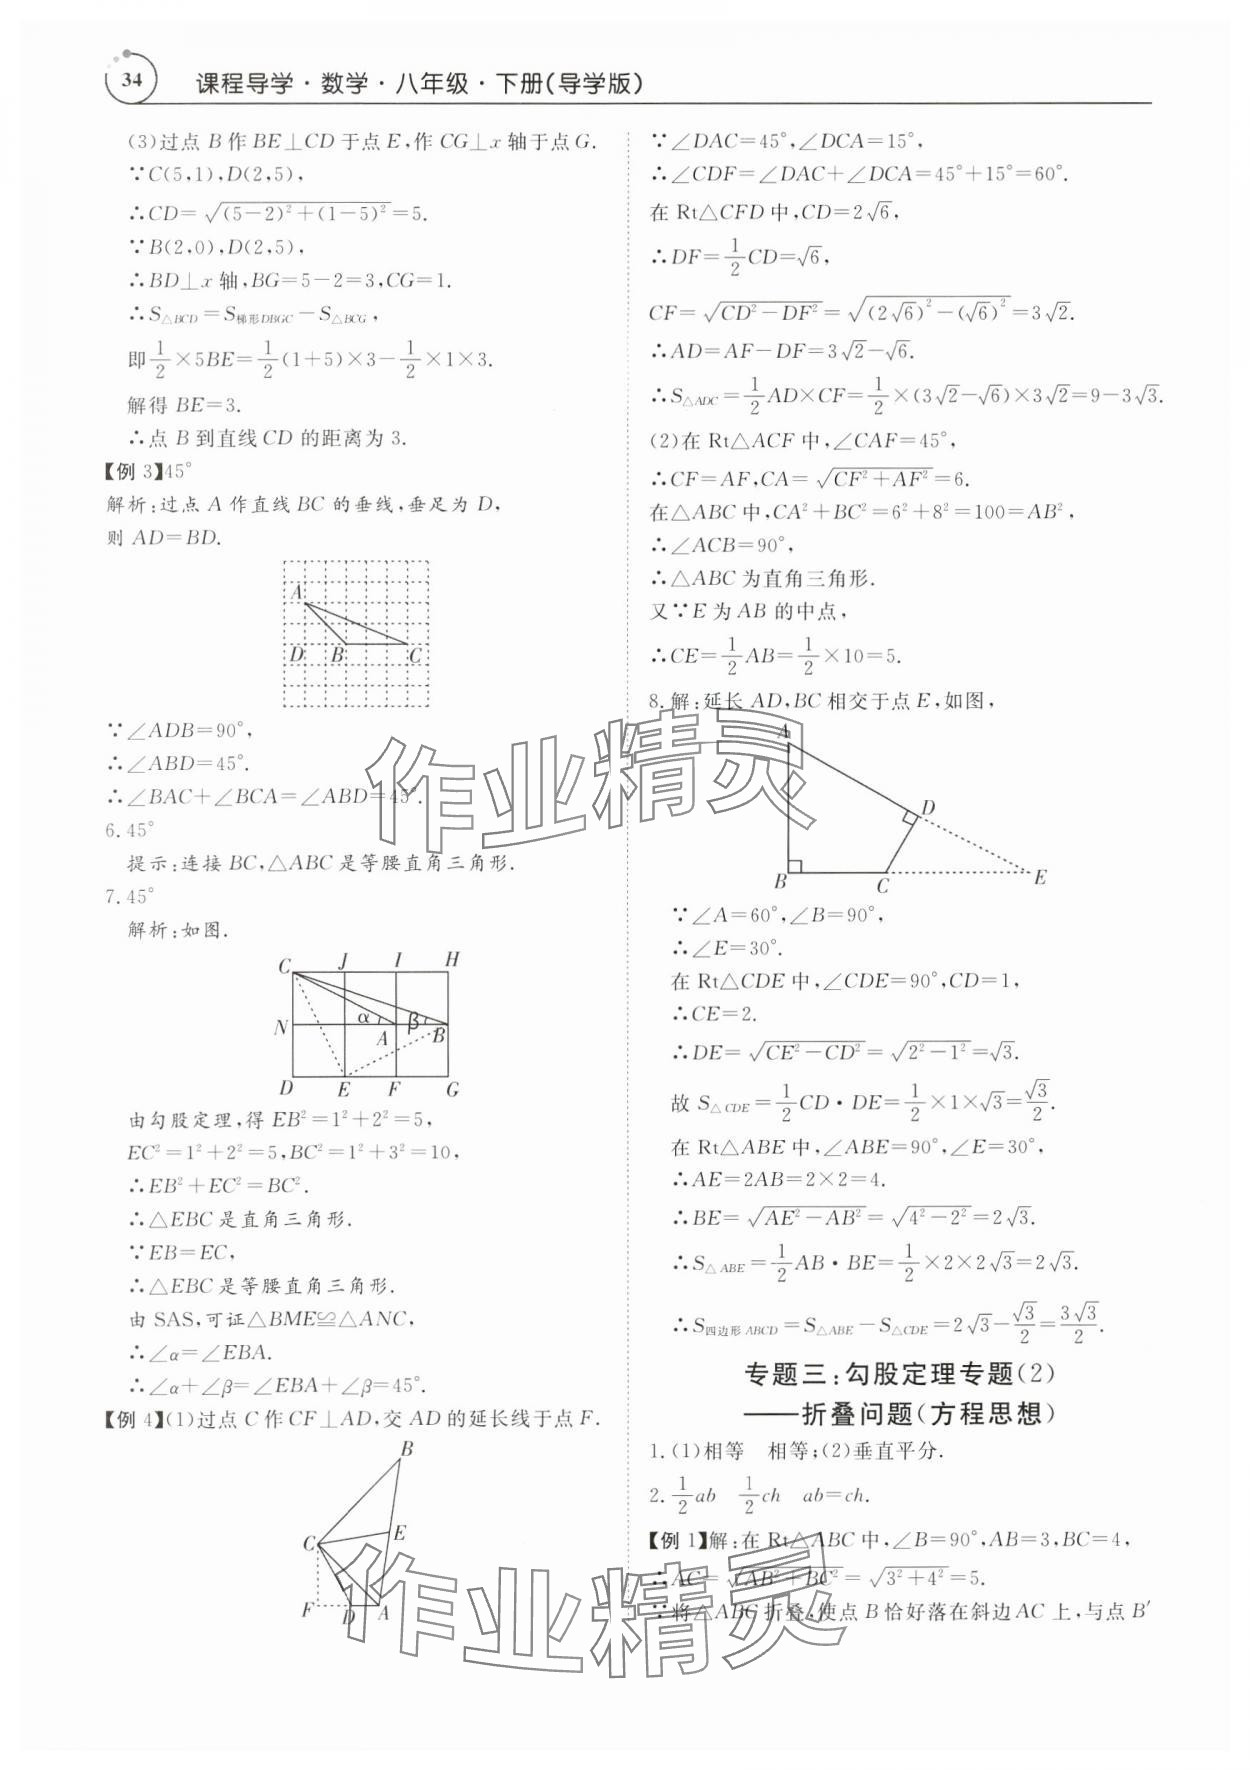 34 课程导学·数学·八年级·下册(导学版)
(3)过点 B 作 BE⊥CD 于点 E,作 CG⊥x 轴于点 G.
∵C(5,1),D(2,5),
∴CD=√((5-2)²+(1-5)²)=5.
∵B(2,0),D(2,5),
∴BD⊥x 轴,BG=5-2=3,CG=1.
∴S△BCD=S梯形DBGC-S△BCG,
即1/2×5BE=1/2(1+5)×3-1/2×1×3.
解得 BE=3.
∴点 B 到直线 CD 的距离为 3.
【例 3】45°
解析:过点 A 作直线 BC 的垂线,垂足为 D,
则 AD=BD.
A
D B C
∵∠ADB=90°,
∴∠ABD=45°.
∴∠BAC+∠BCA=∠ABD=45°.
6.45°
提示:连接 BC,△ABC 是等腰直角三角形.
7.45°
解析:如图.
C J I H
N α A β B
D E F G
由勾股定理,得 EB²=1²+2²=5,
EC²=1²+2²=5,BC²=1²+3²=10,
∴EB²+EC²=BC².
∴△EBC 是直角三角形.
∵EB=EC,
∴△EBC 是等腰直角三角形.
由 SAS,可证△BME≌△ANC,
∴∠α=∠EBA.
∴∠α+∠β=∠EBA+∠β=45°.
【例 4】(1)过点 C 作 CF⊥AD,交 AD 的延长线于点 F.
B
C E
F D A
∵∠DAC=45°,∠DCA=15°,
∴∠CDF=∠DAC+∠DCA=45°+15°=60°.
在 Rt△CFD 中,CD=2√6,
∴DF=1/2CD=√6,
CF=√(CD²-DF²)=√((2√6)²-(√6)²)=3√2.
∴AD=AF-DF=3√2-√6.
∴S△ADC=1/2AD×CF=1/2×(3√2-√6)×3√2=9-3√3.
(2)在 Rt△ACF 中,∠CAF=45°,
∴CF=AF,CA=√(CF²+AF²)=6.
在△ABC 中,CA²+BC²=6²+8²=100=AB²,
∴∠ACB=90°,
∴△ABC 为直角三角形.
又∵E 为 AB 的中点,
∴CE=1/2AB=1/2×10=5.
8.解:延长 AD,BC 相交于点 E,如图,
A
D
B C E
∵∠A=60°,∠B=90°,
∴∠E=30°.
在 Rt△CDE 中,∠CDE=90°,CD=1,
∴CE=2.
∴DE=√(CE²-CD²)=√(2²-1²)=√3.
故 S△CDE=1/2CD·DE=1/2×1×√3=√3/2.
在 Rt△ABE 中,∠ABE=90°,∠E=30°,
∴AE=2AB=2×2=4.
∴BE=√(AE²-AB²)=√(4²-2²)=2√3.
∴S△ABE=1/2AB·BE=1/2×2×2√3=2√3.
∴S四边形ABCD=S△ABE-S△CDE=2√3-√3/2=3√3/2.
专题三:勾股定理专题(2)
——折叠问题(方程思想)
1.(1)相等 相等;(2)垂直平分.
2.1/2ab 1/2ch ab=ch.
【例 1】解:在 Rt△ABC 中,∠B=90°,AB=3,BC=4,
∴AC=√(AB²+BC²)=√(3²+4²)=5.
∵将△ABC 折叠,使点 B 恰好落在斜边 AC 上,与点 B′
作业精灵
作业精灵